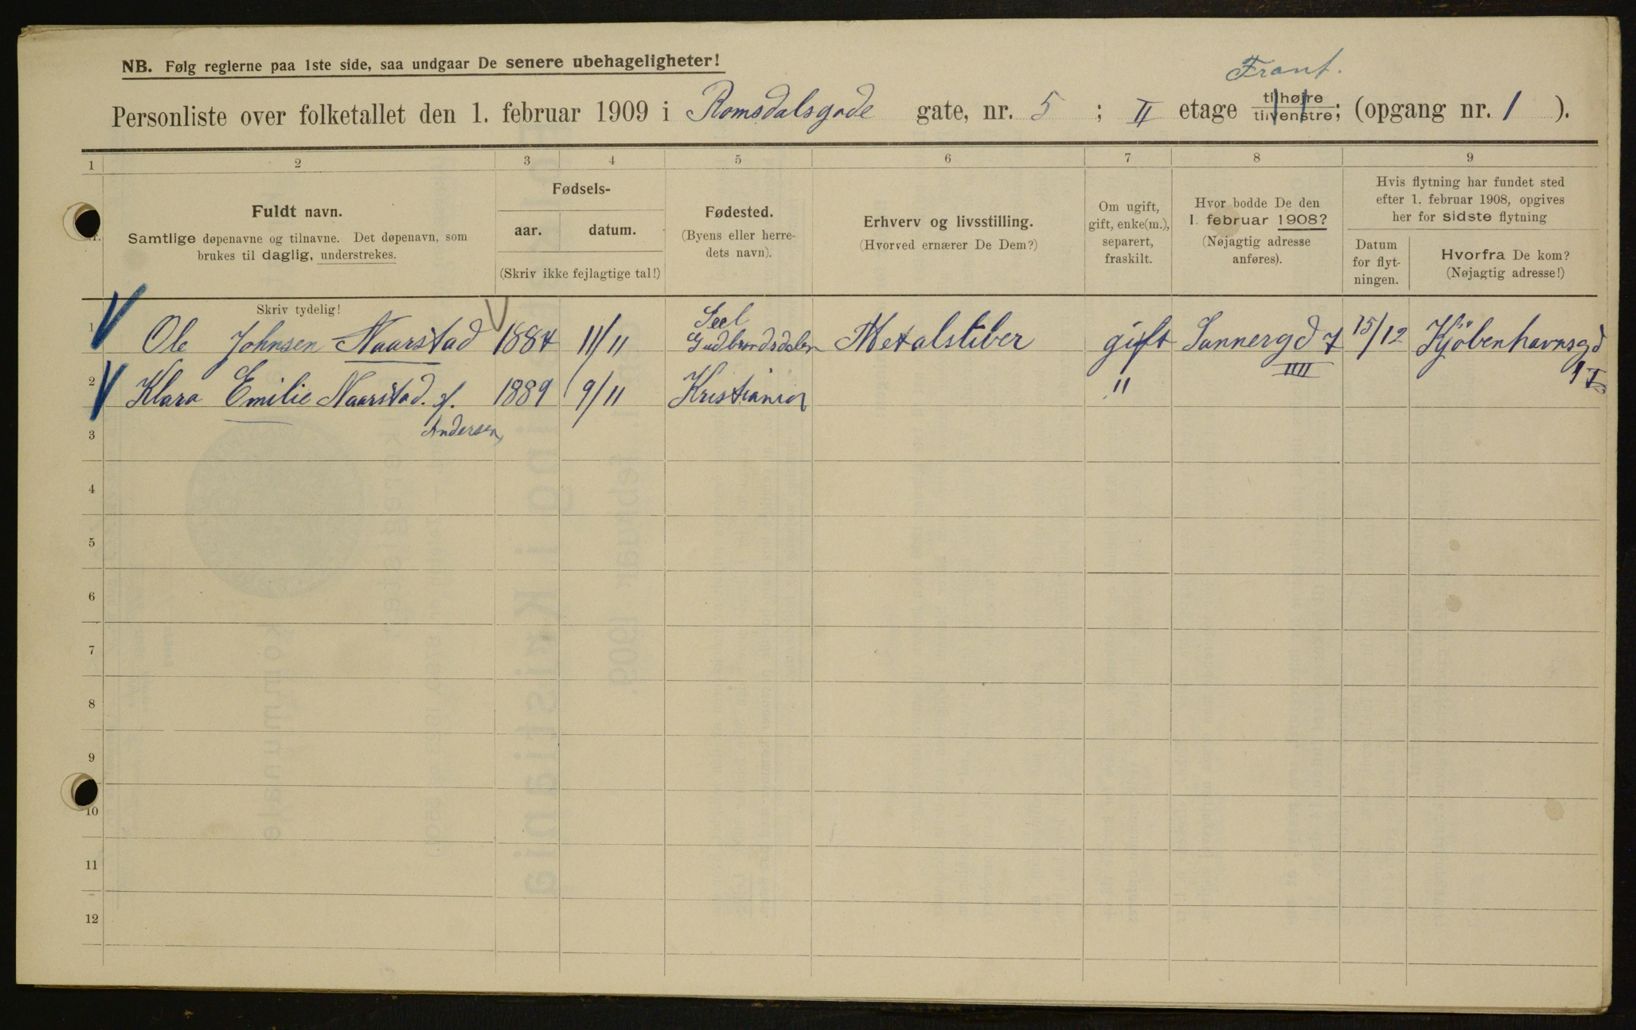 NB. Følg reglerne paa 1ste side, saa undgaar De senere ubehageligheter!
Front.
Personliste over folketallet den 1. februar 1909 i Romsdalsgade gate, nr. 5 ; II etage tilhøjre tilvenstre; (opgang nr. 1 ).
1 2 3 4 5 6 7 8 9
Fuldt navn.
Samtlige døpenavne og tilnavne. Det døpenavn, som
brukes til daglig, understrekes.
Skriv tydelig!
Fødsels-
aar. datum.
(Skriv ikke fejlagtige tal!)
Fødested.
(Byens eller herre-
dets navn).
Erhverv og livsstilling.
(Hvorved ernærer De Dem?)
Om ugift,
gift, enke(m.),
separert,
fraskilt.
Hvor bodde De den
1. februar 1908?
(Nøjagtig adresse
anføres).
Hvis flytning har fundet sted
efter 1. februar 1908, opgives
her for sidste flytning
Datum
for flyt-
ningen.
Hvorfra De kom?
(Nøjagtig adresse!)
1 Ole Johnsen Naarstad 1884 11/11 Sell Gudbrandsdalen Metalsliber gift Sannergd 7 IIII 15/12 Kjøbenhavnsgd
2 Klara Emilie Naarstad. f. Andersen, 1889 9/11 Kristiania "
3
4
5
6
7
8
9
10
11
12